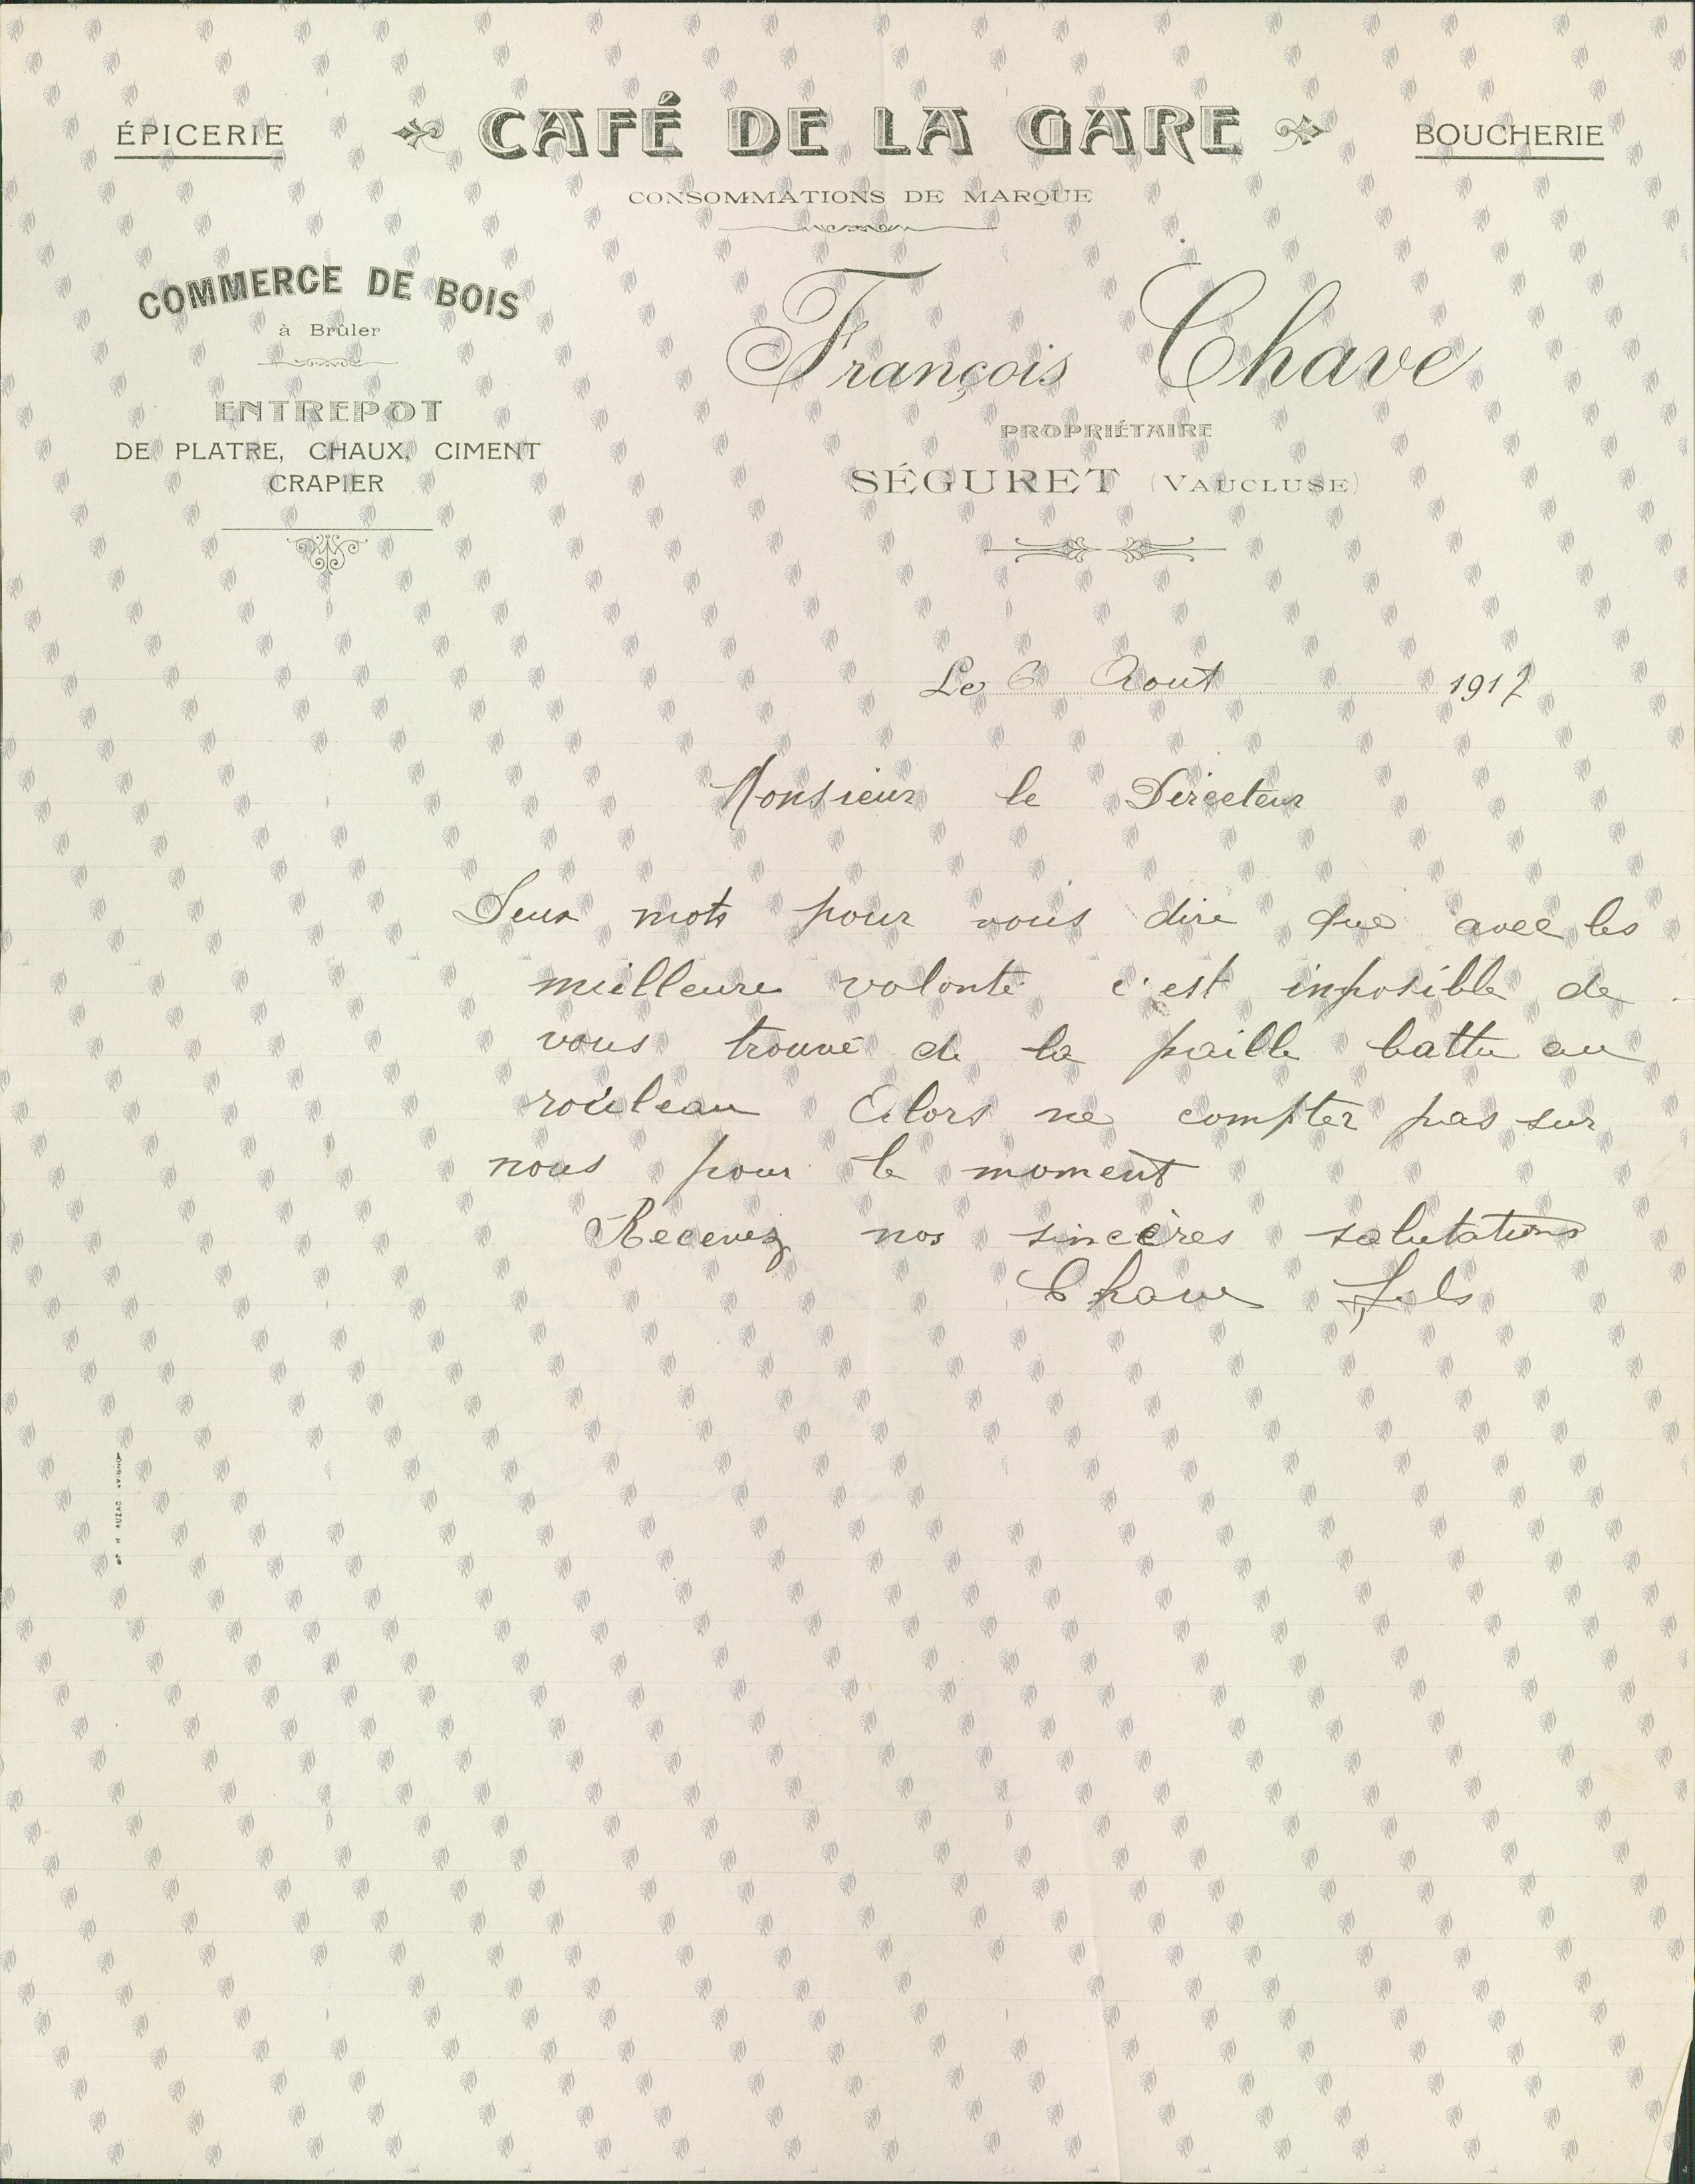 ÉPICERIE
CAFÉ DE LA GARE
BOUCHERIE
CONSOMMATIONS DE MARQUE
COMMERCE DE BOIS
à Brûler
ENTREPOT
DE PLATRE, CHAUX, CIMENT
CRAPIER
François Chave
PROPRIÉTAIRE
SÉGURET (VAUCLUSE)
Le 6 Aout 1912
Monsieur le Directeur
Deux mots pour vous dire que avec les
meilleure volonté c'est imposible de
vous trouvé de la paille battu au
rouleau Alors ne compter pas sur
nous pour le moment
Recevez nos sincères salutations
Chave fils
H AUZAC AVIGNON